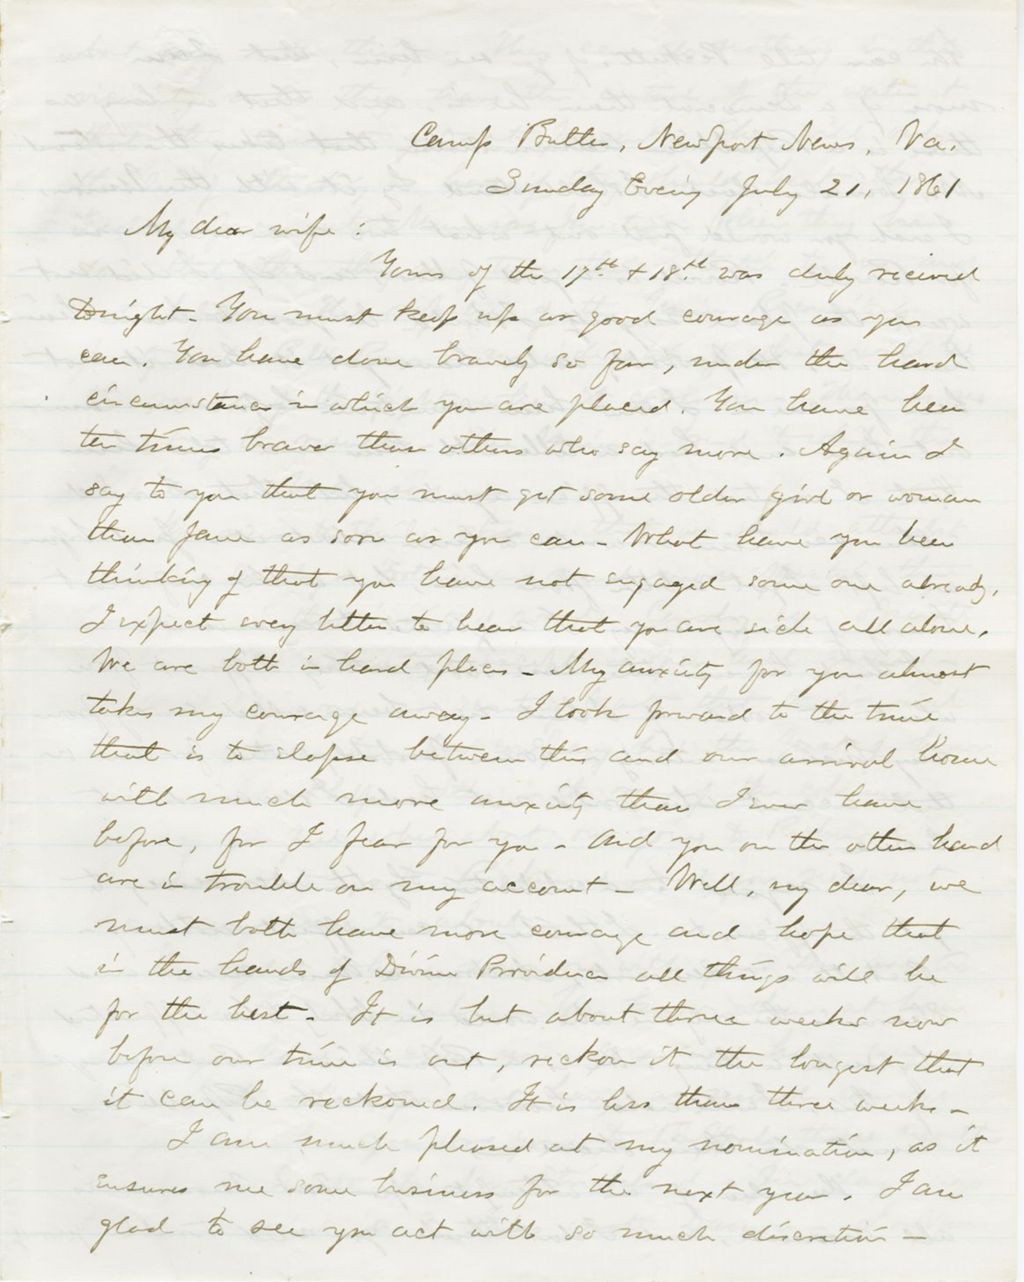 Camp Butler, Newport News, Va.
Sunday Eveing July 21, 1861
My dear wife:
Yours of the 17th & 18th was duly recieved
tonight - You must keep up as good courage as you
can. You have done bravely so far, under the hard
circumstances in which you are placed. You have been
ten times braver than others who say more. Again I
say to you that you must get some older girl or woman
than Jane as soon as you can - What have you been
thinking of that you have not engaged some one already.
I expect every letter to hear that you are sick all alone.
We are both in hard places - My anxiety for you almost
takes my courage away - I look forward to the time
that is to elapse between this and our arrival home
with much more anxiety than I ever have
before, for I fear for you - And you on the other hand
are in trouble on my account - Well, my dear, we
must both have more courage and hope that
in the hands of Divine Providence all things will be
for the best - It is but about three weeks now
before our time is out, reckon it the longest that
it can be reckoned. It is less than three weeks -
I am much pleased at my nomination, as it
ensures me some business for the next year. I am
glad to see you act with so much discretion -